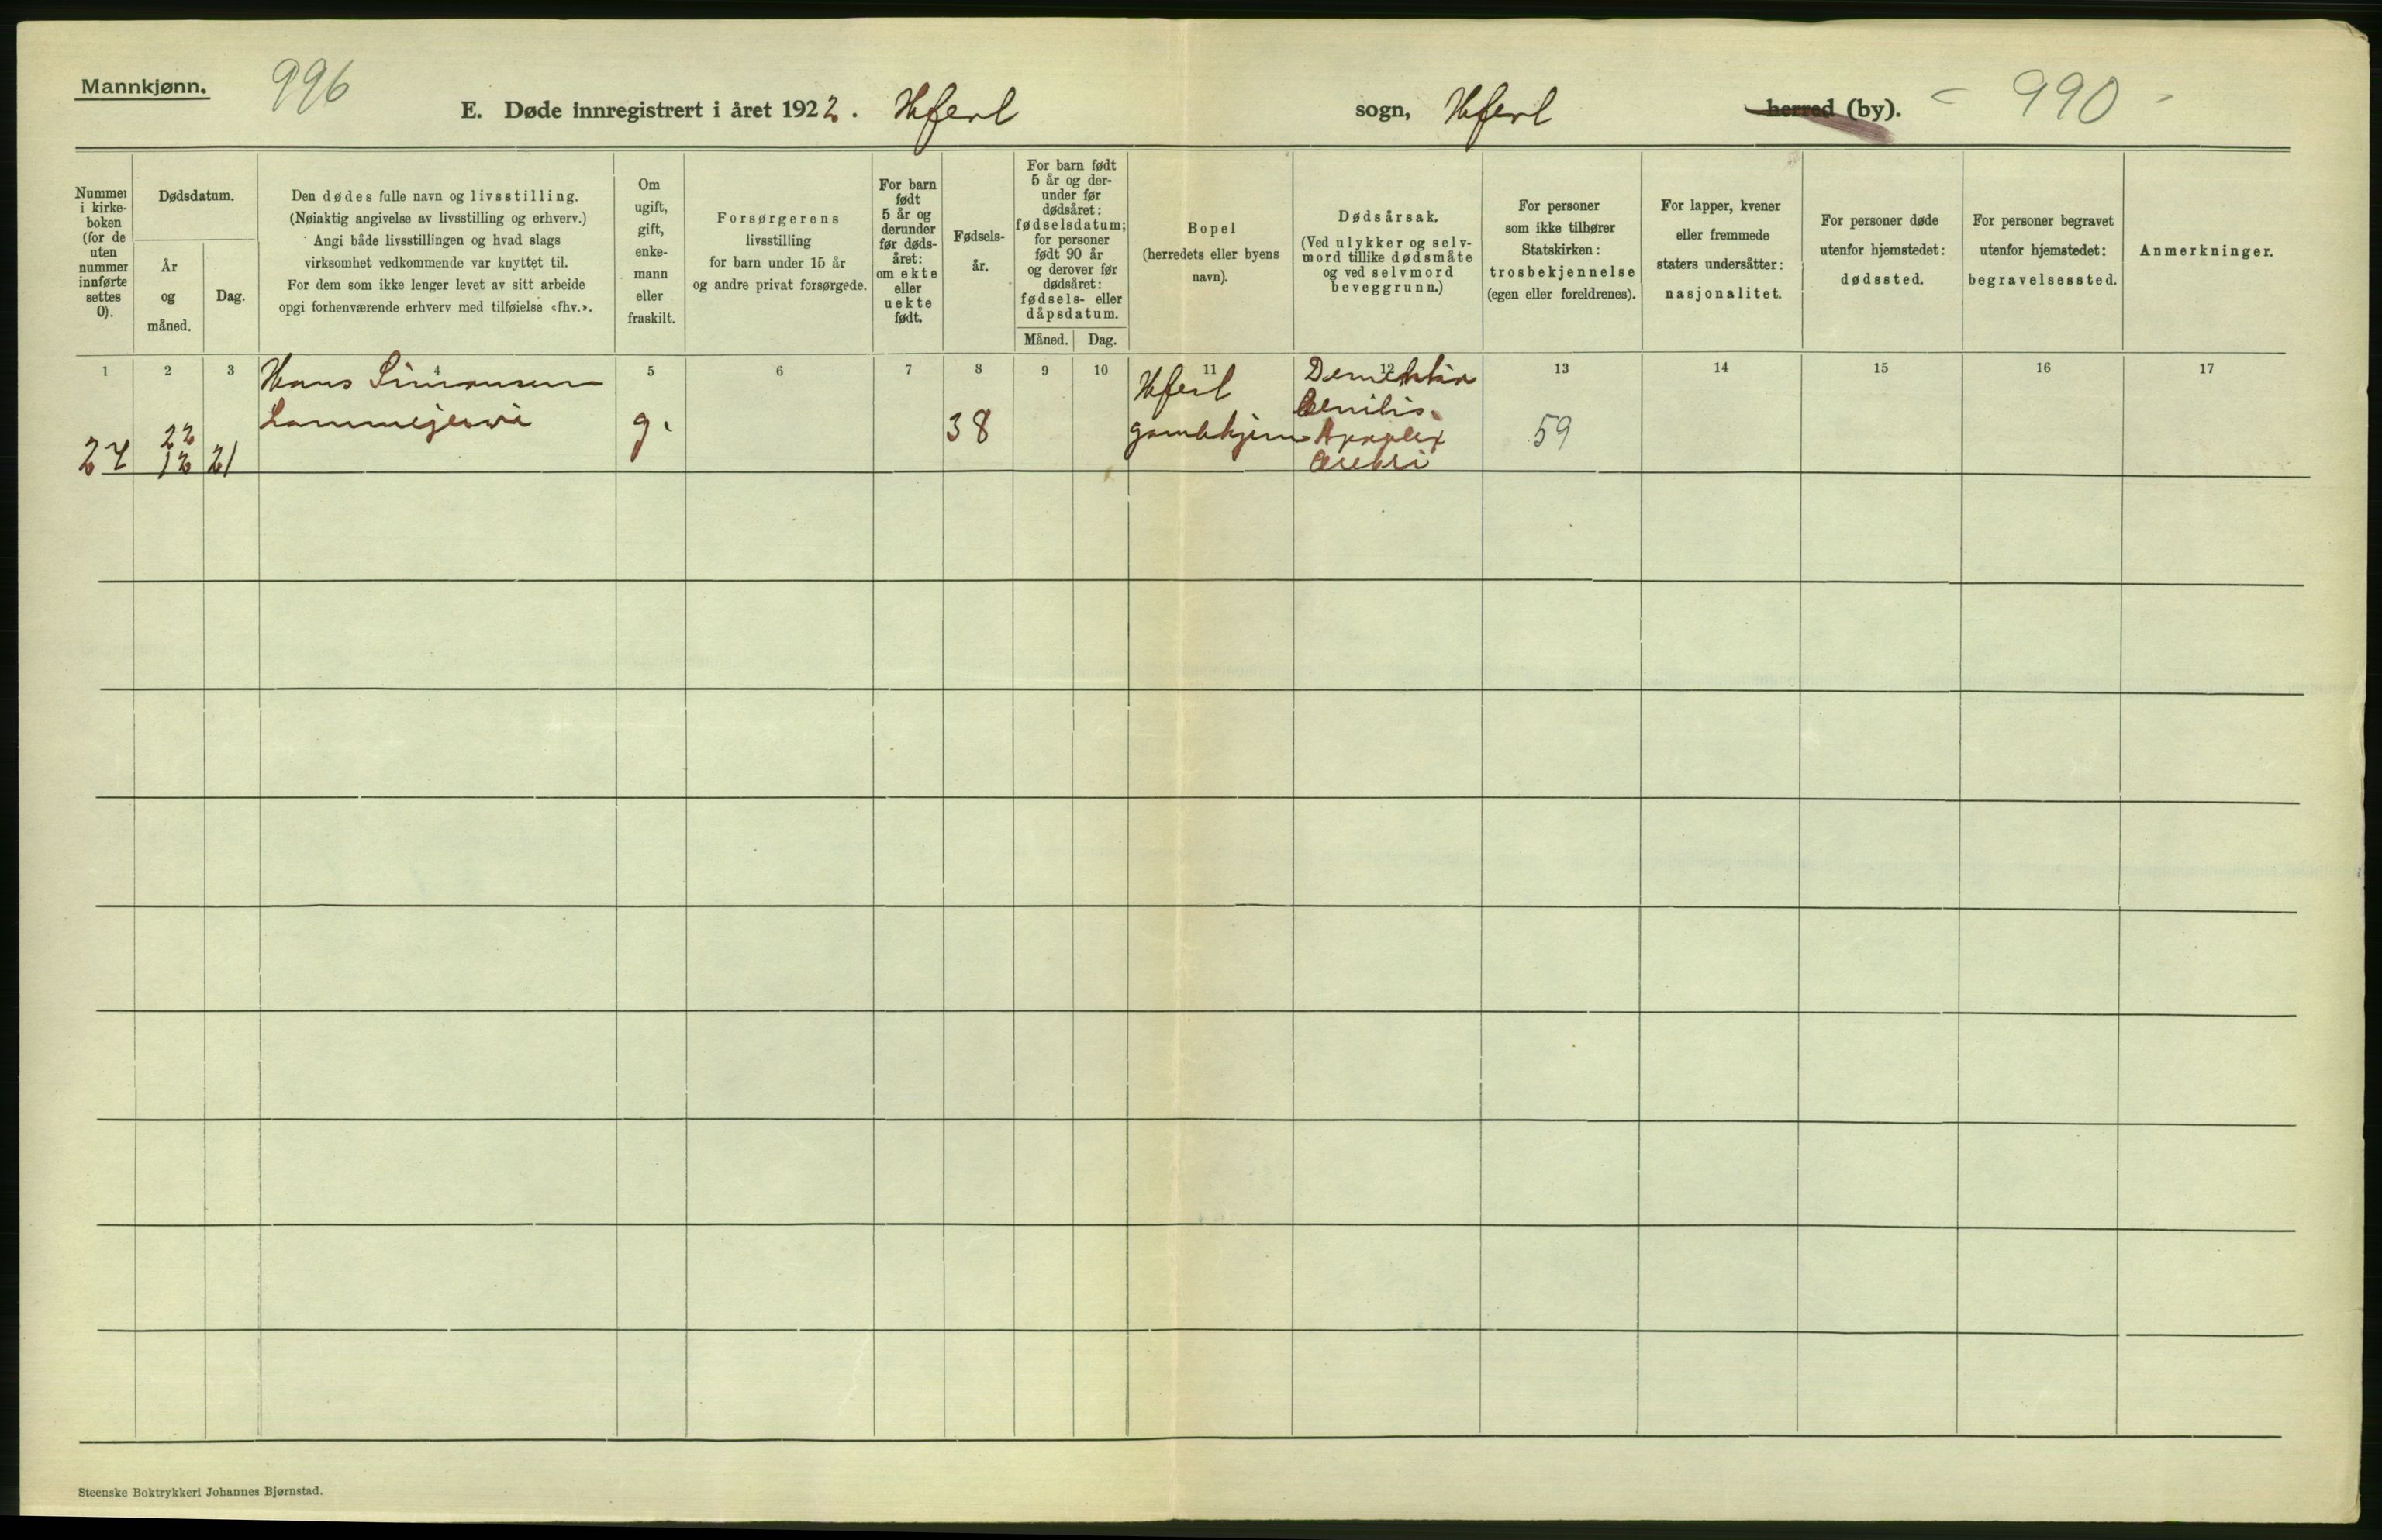 Mannkjønn.
996
E. Døde innregistrert i året 1922. Hferl sogn, Hferl herred (by). - 990 -
Nummer i kirkeboken (for de uten nummer innførte settes 0).
Dødsdatum.
År og måned.
Dag.
Den dødes fulle navn og livsstilling.
(Nøiaktig angivelse av livsstilling og erhverv.)
Angi både livsstillingen og hvad slags
virksomhet vedkommende var knyttet til.
For dem som ikke lenger levet av sitt arbeide
opgi forhenværende erhverv med tilføielse «fhv.».
Om
ugift,
gift,
enke-
mann
eller
fraskilt.
Forsørgerens
livsstilling
for barn under 15 år
og andre privat forsørgede.
For barn
født
5 år og
derunder
før døds-
året:
om ekte
eller
uekte
født.
Fødsels-
år.
For barn født
5 år og der-
under før
dødsåret:
fødselsdatum;
for personer
født 90 år
og derover før
dødsåret:
fødsels- eller
dåpsdatum.
Måned. Dag.
Bopel
(herredets eller byens
navn).
Dødsårsak.
(Ved ulykker og selv-
mord tillike dødsmåte
og ved selvmord
beveggrunn.)
For personer
som ikke tilhører
Statskirken:
trosbekjennelse
(egen eller foreldrenes).
For lapper, kvener
eller fremmede
staters undersåtter:
nasjonalitet.
For personer døde
utenfor hjemstedet:
dødssted.
For personer begravet
utenfor hjemstedet:
begravelsessted.
Anmerkninger.
1 2 3 4 5 6 7 8 9 10 11 12 13 14 15 16 17
Hans Simonsen
Hferl
Dementia
Senilis.
g.
38
gamlehjem
Apoplex
59
27
22
12
21
Cerebri
Steenske Boktrykkeri Johannes Bjørnstad.